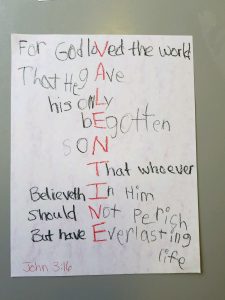 For God loVed the world
That He gAve
his onLy
bEgotten
soN
That whoever
Believeth In Him
should Not Perich
But have Everlasting
life
John 3:16